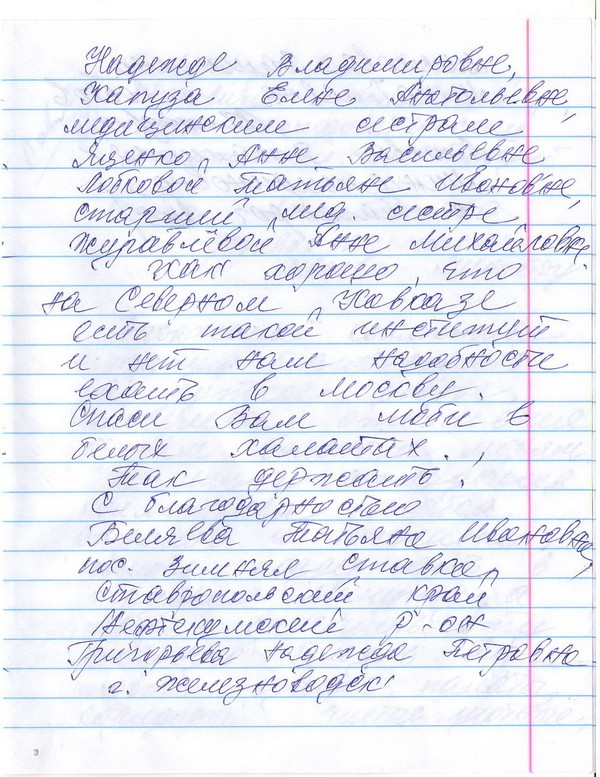 Надежде Владимировне,
Хапуза Елене Анатольевне,
медицинским сестрам
Яценко Анне Васильевне
Лобковой Татьяне Ивановне,
старшей мед. сестре
Журавлёвой Анне Михайловне.
Как хорошо, что
на Северном Кавказе
есть такой институт
и нет нам надобности
ехать в Москву.
Спаси Вам люди в
белых халатах.
Так держать!
С благодарностью
Беляева Татьяна Ивановна,
пос. Зимняя Ставка,
Ставропольский край
Нефтекумский р-он
Григорьева Надежда Петровна
г. Железноводск